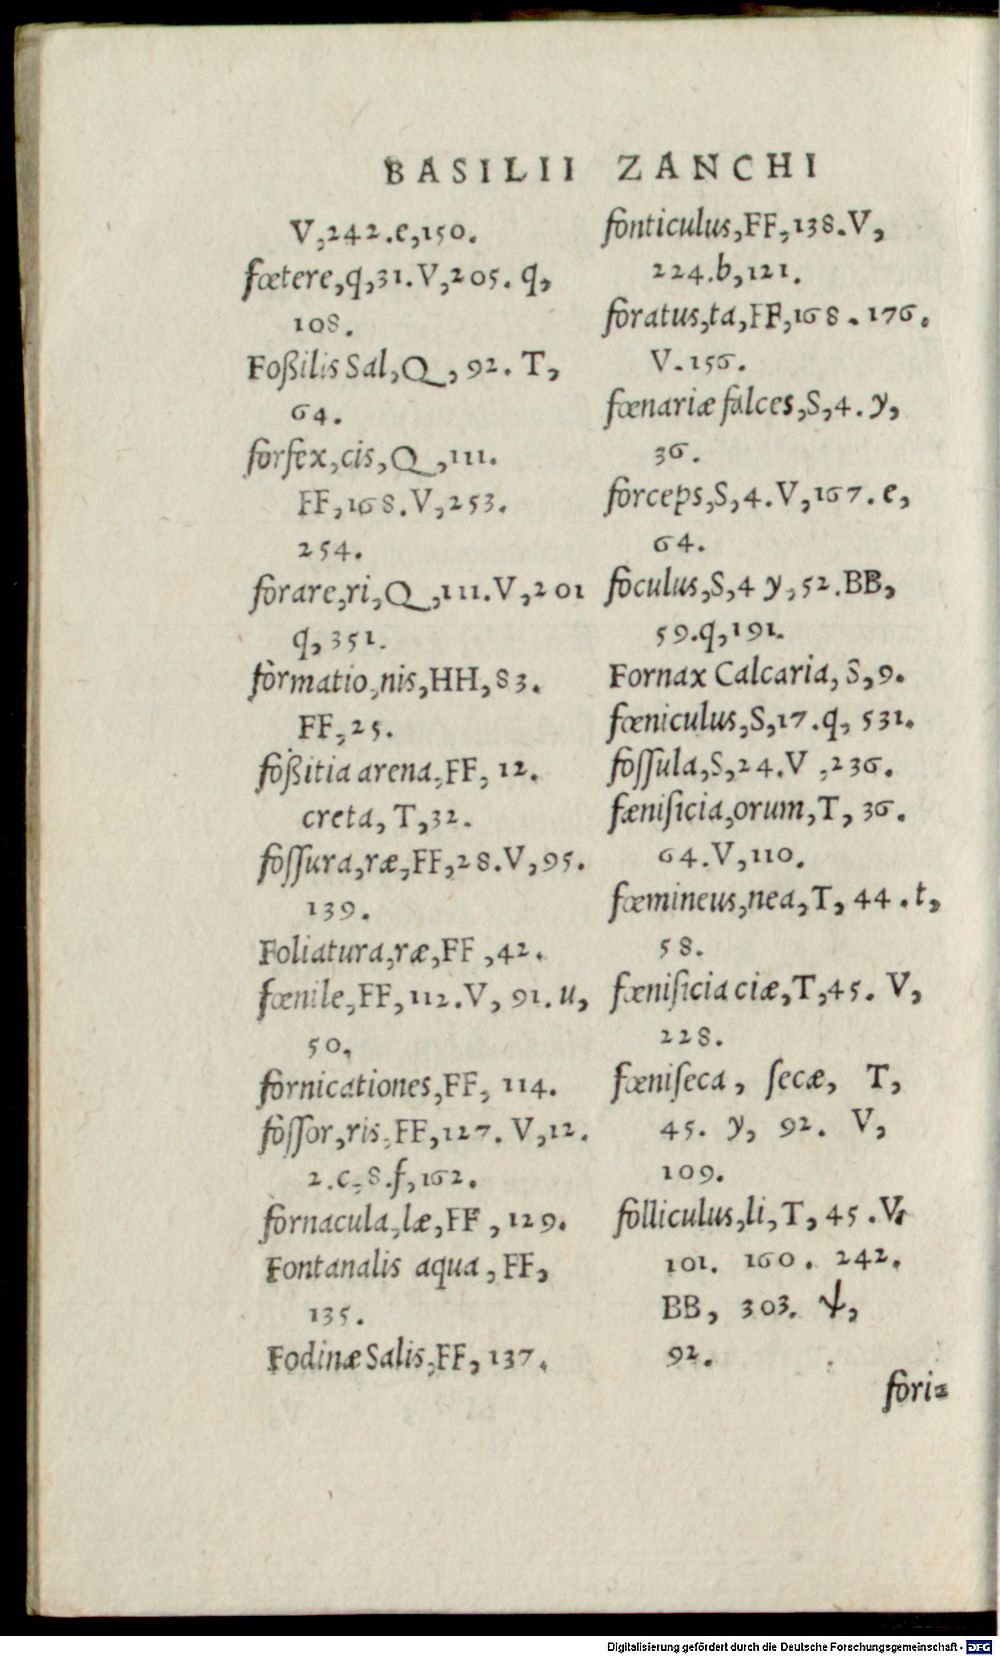 BASILII ZANCHI
V,242.e,150.
fœtere,q,31.V,205.q,
108.
Foßilis Sal,Q,92.T,
64.
forfex,cis,Q,111.
FF,168.V,253.
254.
forare,ri,Q,111.V,201
q,351.
formatio,nis,HH,83.
FF,25.
foßitia arena,FF,12.
creta,T,32.
foſſura,ræ,FF,28.V,95.
139.
Foliatura,ræ,FF,42.
fœnile,FF,112.V,91.u,
50.
fornicationes,FF,114.
foſſor,ris,FF,127.V,12.
2.c,8.f,162.
fornacula,læ,FF,129.
Fontanalis aqua,FF,
135.
Fodinæ Salis,FF,137.
fonticulus,FF,138.V,
224.b,121.
foratus,ta,FF,168.176.
V.156.
fœnariæ falces,S,4.y,
36.
forceps,S,4.V,167.e,
64.
foculus,S,4 y,52.BB,
59.q,191.
Fornax Calcaria,S,9.
fœniculus,S,17.q,531.
foſſula,S,24.V,236.
fæniſicia,orum,T,36.
64.V,110.
fœmineus,nea,T,44.t,
58.
fœniſicia ciæ,T,45.V,
228.
fœniſeca, ſecæ, T,
45. y, 92. V,
109.
folliculus,li,T,45.V,
101. 160. 242.
BB, 303. ψ,
92.
fori=
Digitalisierung gefördert durch die Deutsche Forschungsgemeinschaft - DFG